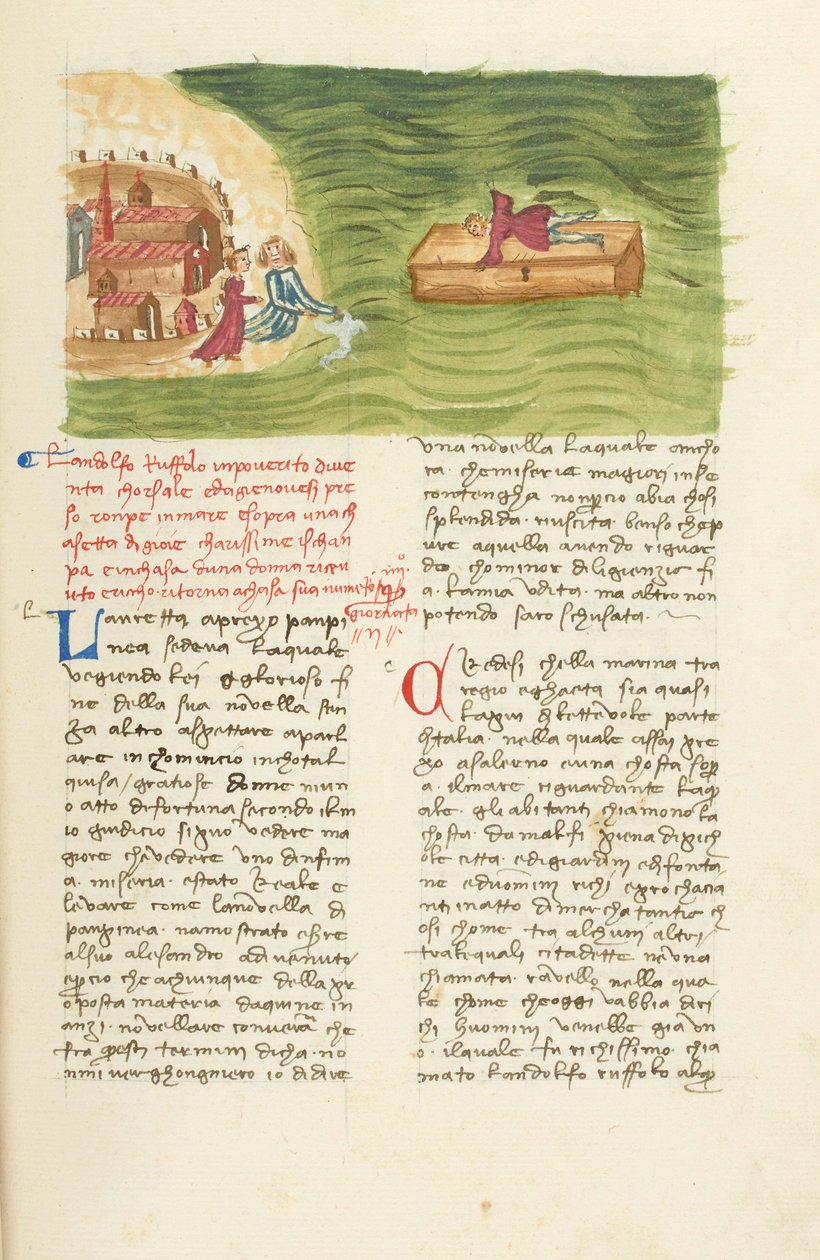 Landolfo Ruffolo inpoverito dive
nta chorsale edagienovesi pre
so ronpe inmare esopra unach
asetta digioie charissime ischan
pa einchasa duna donna ricev
uto ericho ritorna achasa sua
giornata
Lauretta apreso panpi
nea sedeva laquale
vegiendo lei glorioso fi
ne della sua novella san
za altro aspettare aparl
are inchomincio inchotal
guisa / gratiose donne niun
o atto difortuna secondo ilm
io giudicio sipuo vedere ma
giore chevedere uno dinfim
a miseria estato Reale e
levare come lanovella di
panpinea namostrato essere
alsuo alesandro adivenuto
percio che achiunque della pr
oposta materia daquine in
anzi novellare converra che
fra questi termini dicha no
nmi verghongniero io didire
una novella laquale ancho
ra chemiserie magiori inse
contengha nonpercio abia chosi
splendida riuscita benso chep
ure aquella avendo riguar
do chominor diligienzia fi
a lamia udita ma altro non
potendo saro schusata
CRedesi chella marina tra
regio eghaeta sia quasi
lapiu dilettevole parte
ditalia nella quale assai pre
so asalerno euna chosta sopr
a ilmare riguardante laqu
ale gliabitanti chiamono la
chosta damalfi piena dipich
ole citta edigiardini edifonta
ne eduomini richi eprochacia
nti inatto dimerchatantia ch
osi chome tra alchuni altri
tralequali cittadette neuna
chiamata ravello nella qua
le chome cheoggi vabbia diri
chi huomini venebbe gia un
o ilquale fu richissimo chia
mato landolfo ruffolo alqu